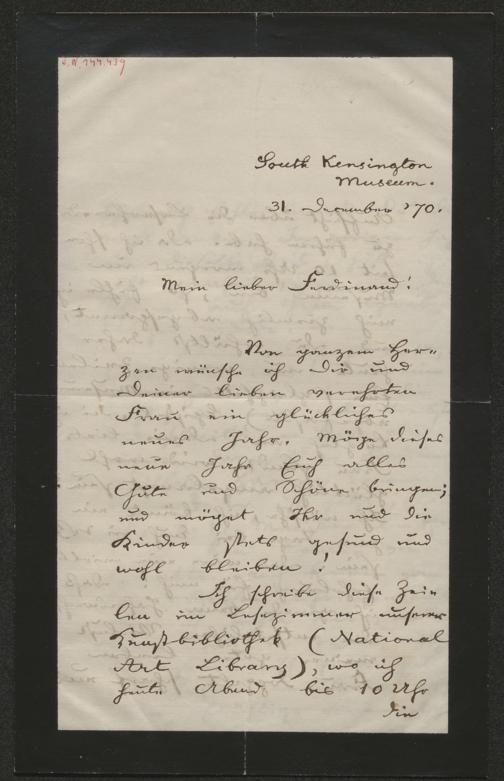 I.N. 144.439
South Kensington
Museum.
31. December '70.
Mein lieber Ferdinand!
Von ganzem Her=
zen wünsche ich Dir und
Deiner lieben verehrten
Frau ein glückliches
neues Jahr. Möge dieses
neue Jahr Euch alles
Gute und Schöne bringen;
und möget Ihr und die
Kinder stets gesund und
wohl bleiben!
Ich schreibe diese Zei=
len im Lesezimmer unserer
Kunstbibliothek (National
Art Library), wo ich
heute Abend bis 10 Uhr
die